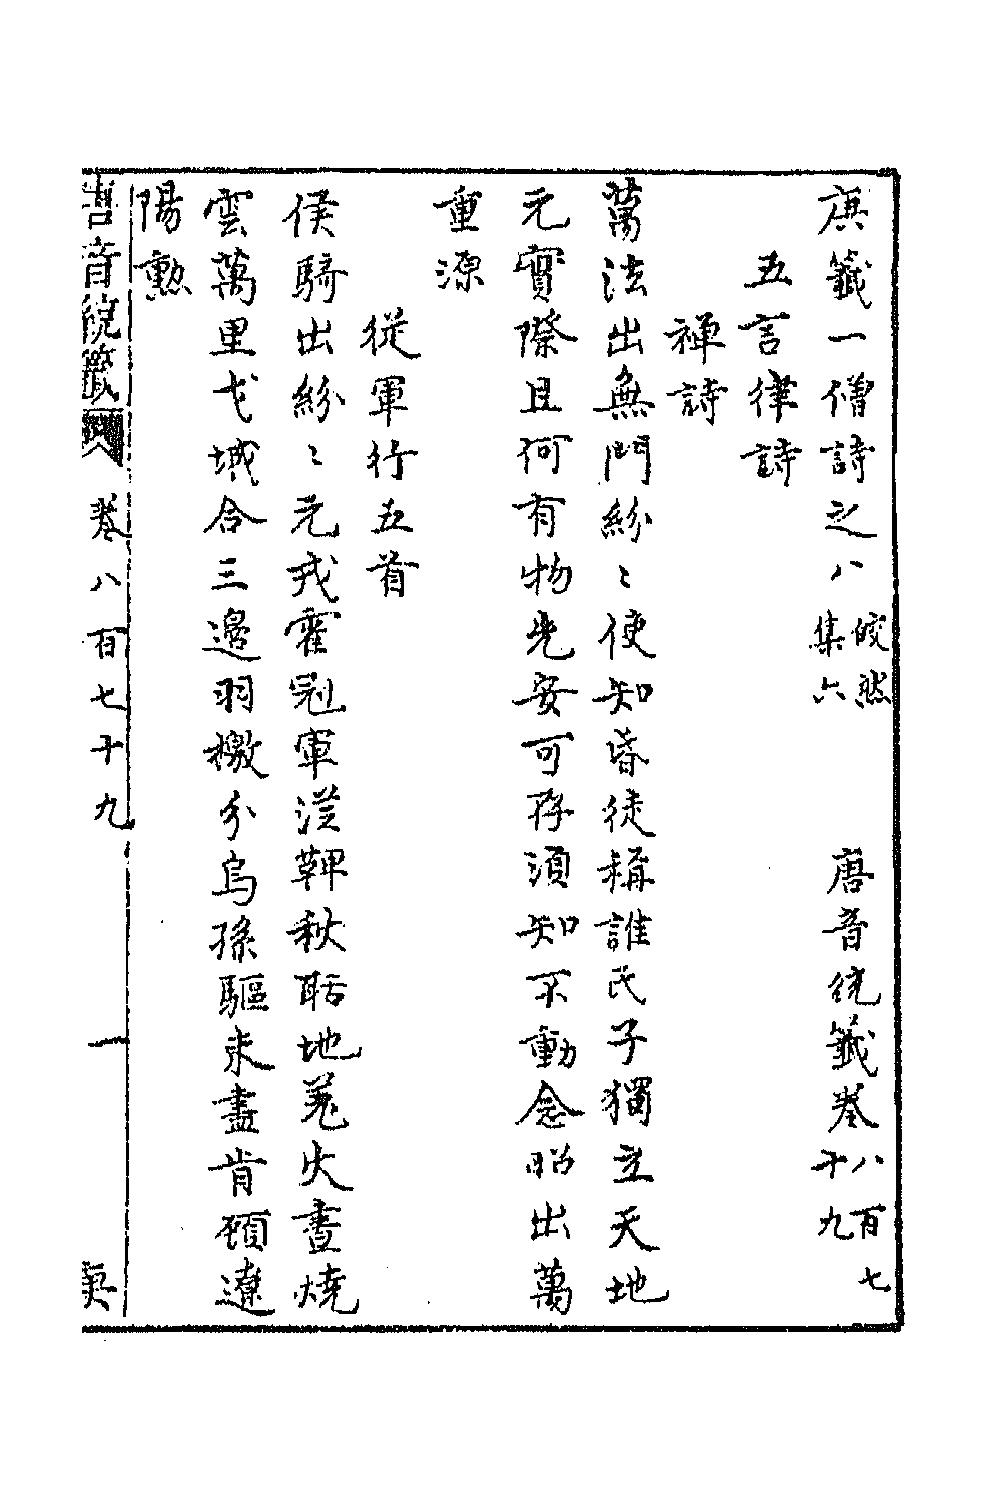 庚籤一僧詩之八 皎然集六 唐音統籤卷八百七十九
五言律詩
禪詩
萬法出無門紛〻使知昏徒稱誰氏子獨立天地
元實際且何有物光安可存須知不動念昭出萬
重源
從軍行五首
侯騎出紛〻元戎霍冠軍漢鞞秋聒地羌火晝燒
雲萬里戍城合三邊羽檄分烏孫驅未盡肯頋遼
陽勲
唐音統籤 卷八百七十九 一